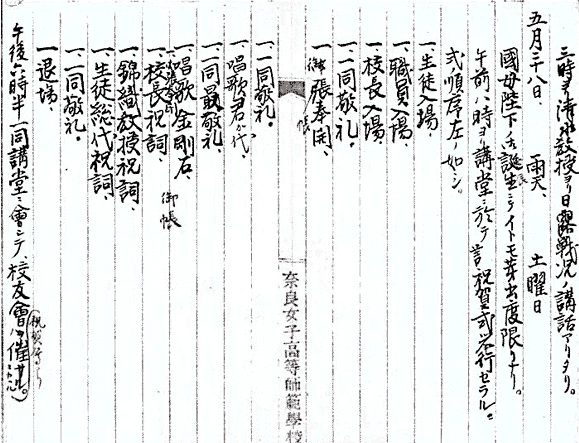 三時ヨリ清水教授ヨリ日露戦況ノ講話アリタリ。
五月二十八日、 雨天、 土曜日
國母陛下ノ御誕生ニシテイトモ芽出度限リナリ。
午前八時ヨリ講堂ニ於テ祝賀式挙行セラル。
式順序左ノ如シ。
一、生徒入場、
一、職員入場、
一、校長入場、
一、一同敬礼。
一、御帳奉開、
奈良女子高等師範學校
一、一同敬礼。
一、唱歌君が代、
一、一同最敬礼。
一、唱歌金剛石、
御帳
一、校長祝詞、
一、錦織教授祝詞、
一、生徒総代祝詞、
一、一同敬礼。
一、退場、
午後六時半一同講堂ニ會シテ、校友會ヲ催